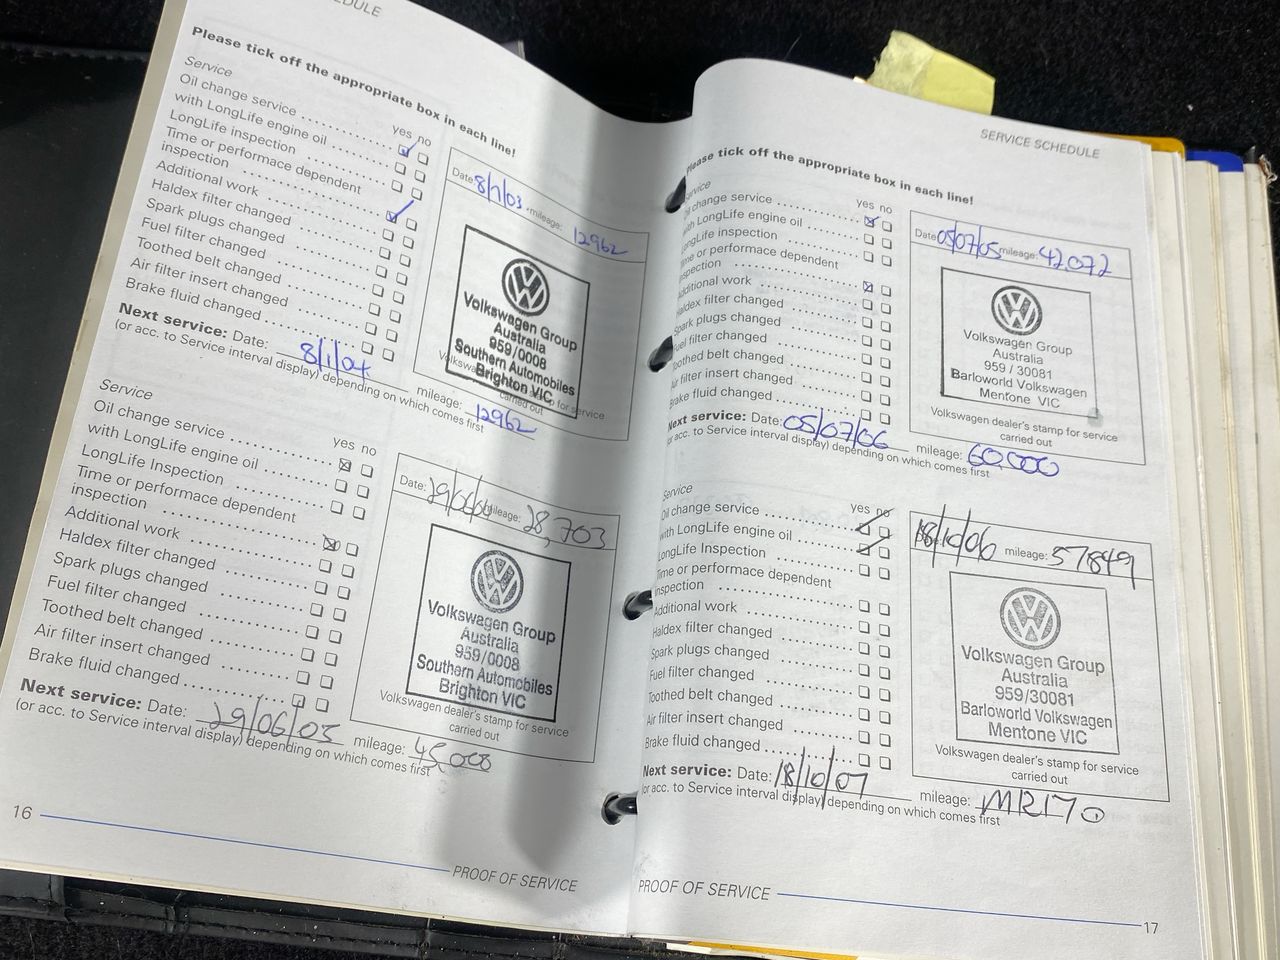 DULE
Please tick off the appropriate box in each line!
Service
yes no
Oil change service
with LongLife engine oil
LongLife inspection
Time or performace dependent
inspection
Additional work
Haldex filter changed
Spark plugs changed
Fuel filter changed
Toothed belt changed
Air filter insert changed
Brake fluid changed
Next service: Date: 8/1/04 mileage: 12962
(or acc. to Service interval display) depending on which comes first
Date: 8/1/03 mileage: 12962
Volkswagen Group
Australia
959/0008
Southern Automobiles
Brighton VIC
carried out
Service
yes no
Oil change service
with LongLife engine oil
LongLife Inspection
Time or performace dependent
inspection
Additional work
Haldex filter changed
Spark plugs changed
Fuel filter changed
Toothed belt changed
Air filter insert changed
Brake fluid changed
Next service: Date: 29/06/05 mileage: 45,000
(or acc. to Service interval display) depending on which comes first
Date: mileage: 28,703
Volkswagen Group
Australia
959/0008
Southern Automobiles
Brighton VIC
Volkswagen dealer's stamp for service
carried out
16
PROOF OF SERVICE
SERVICE SCHEDULE
Please tick off the appropriate box in each line!
Service
yes no
Oil change service
with LongLife engine oil
LongLife inspection
Time or performace dependent
inspection
Additional work
Haldex filter changed
Spark plugs changed
Fuel filter changed
Toothed belt changed
Air filter insert changed
Brake fluid changed
Next service: Date: 05/07/06 mileage: 60,000
(or acc. to Service interval display) depending on which comes first
Date: 05/07/05 mileage: 42,072
Volkswagen Group
Australia
959 / 30081
Barloworld Volkswagen
Mentone VIC
Volkswagen dealer's stamp for service
carried out
Service
yes no
Oil change service
with LongLife engine oil
LongLife Inspection
Time or performace dependent
inspection
Additional work
Haldex filter changed
Spark plugs changed
Fuel filter changed
Toothed belt changed
Air filter insert changed
Brake fluid changed
Next service: Date: 18/10/07 mileage:
(or acc. to Service interval display) depending on which comes first
18/10/06 mileage: 57849
Volkswagen Group
Australia
959/30081
Barloworld Volkswagen
Mentone VIC
Volkswagen dealer's stamp for service
carried out
PROOF OF SERVICE
17